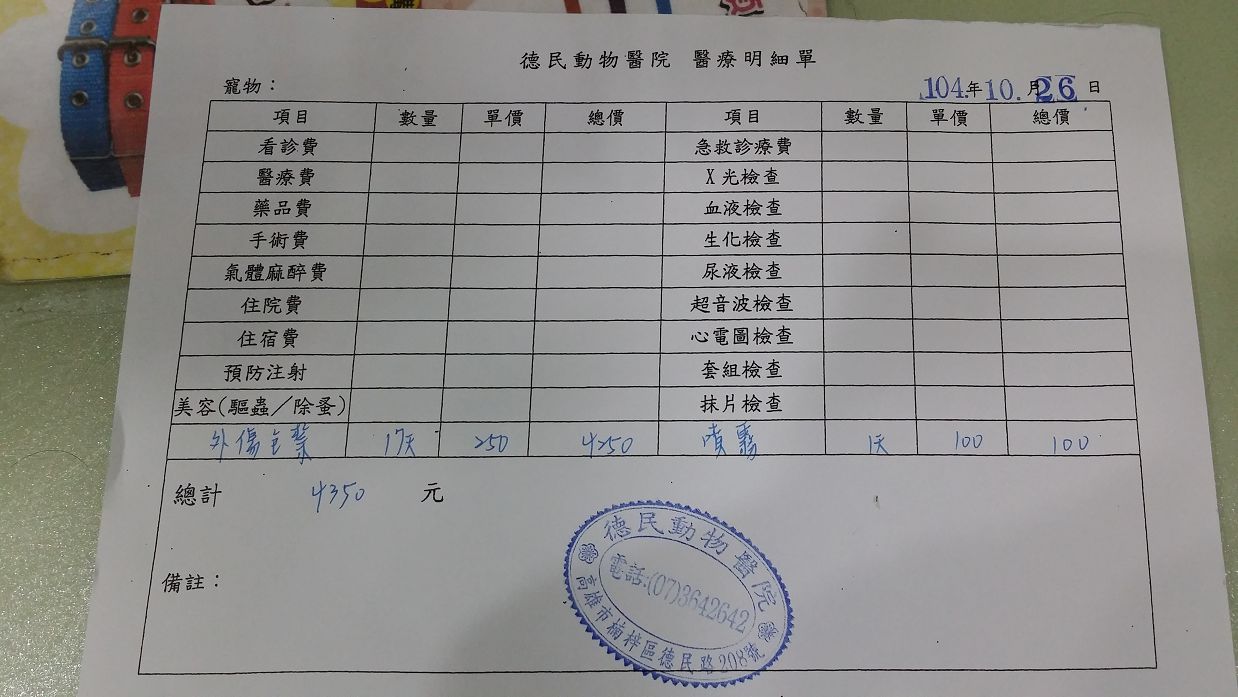 德民動物醫院 醫療明細單
寵物： 104.年10.月26日
項目 數量 單價 總價 項目 數量 單價 總價
看診費 急救診療費
醫療費 X光檢查
藥品費 血液檢查
手術費 生化檢查
氣體麻醉費 尿液檢查
住院費 超音波檢查
住宿費 心電圖檢查
預防注射 套組檢查
美容(驅蟲／除蚤) 抹片檢查
外傷包紮 17天 250 4250 噴霧 1天 100 100
總計 4350 元
備註：
德民動物醫院
電話:(07)3642642
高雄市楠梓區德民路208號